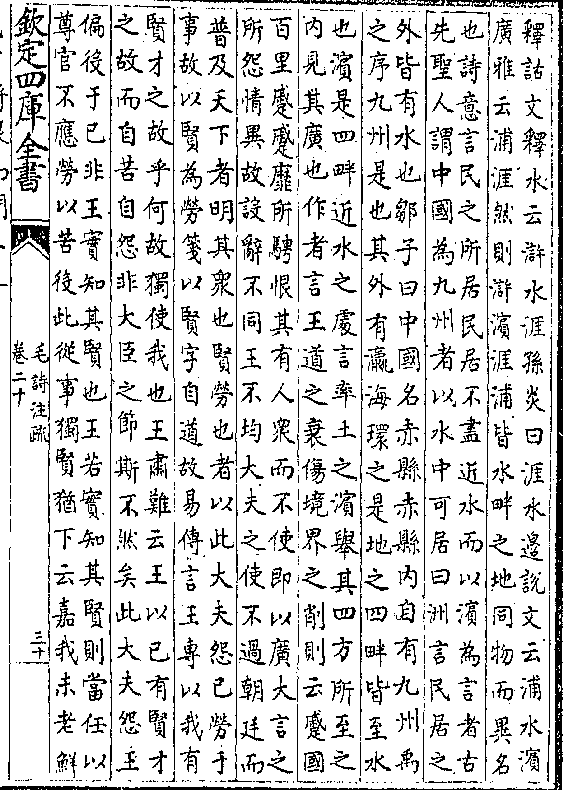 釋詁文釋水云滸水涯孫炎曰涯水邊說文云浦水濱
廣雅云浦涯然則滸濱涯浦皆水畔之地同物而異名
也詩意言民之所居民居不盡近水而以濱為言者古
先聖人謂中國為九州者以水中可居曰洲言民居之
外皆有水也鄒子曰中國名赤縣赤縣內自有九州禹
之序九州是也其外有瀛海環之是地之四畔皆至水
也濱是四畔近水之處言率土之濱舉其四方所至之
內見其廣也作者言王道之衰傷境界之削則云蹙國
百里蹙蹙靡所騁恨其有人衆而不使即以廣大言之
所怨情異故設辭不同王不均大夫之使不過朝廷而
普及天下者明其衆也賢勞也者以此大夫怨已勞于
事故以賢為勞箋以賢字自道故易傳言王專以我有
賢才之故乎何故獨使我也王肅難云王以已有賢才
之故而自苦自怨非大臣之節斯不然矣此大夫怨王
偏役于已非王實知其賢也王若實知其賢則當任以
尊官不應勞以苦役此從事獨賢猶下云嘉我未老鮮
欽定四庫全書
毛詩注疏
卷二十
三十